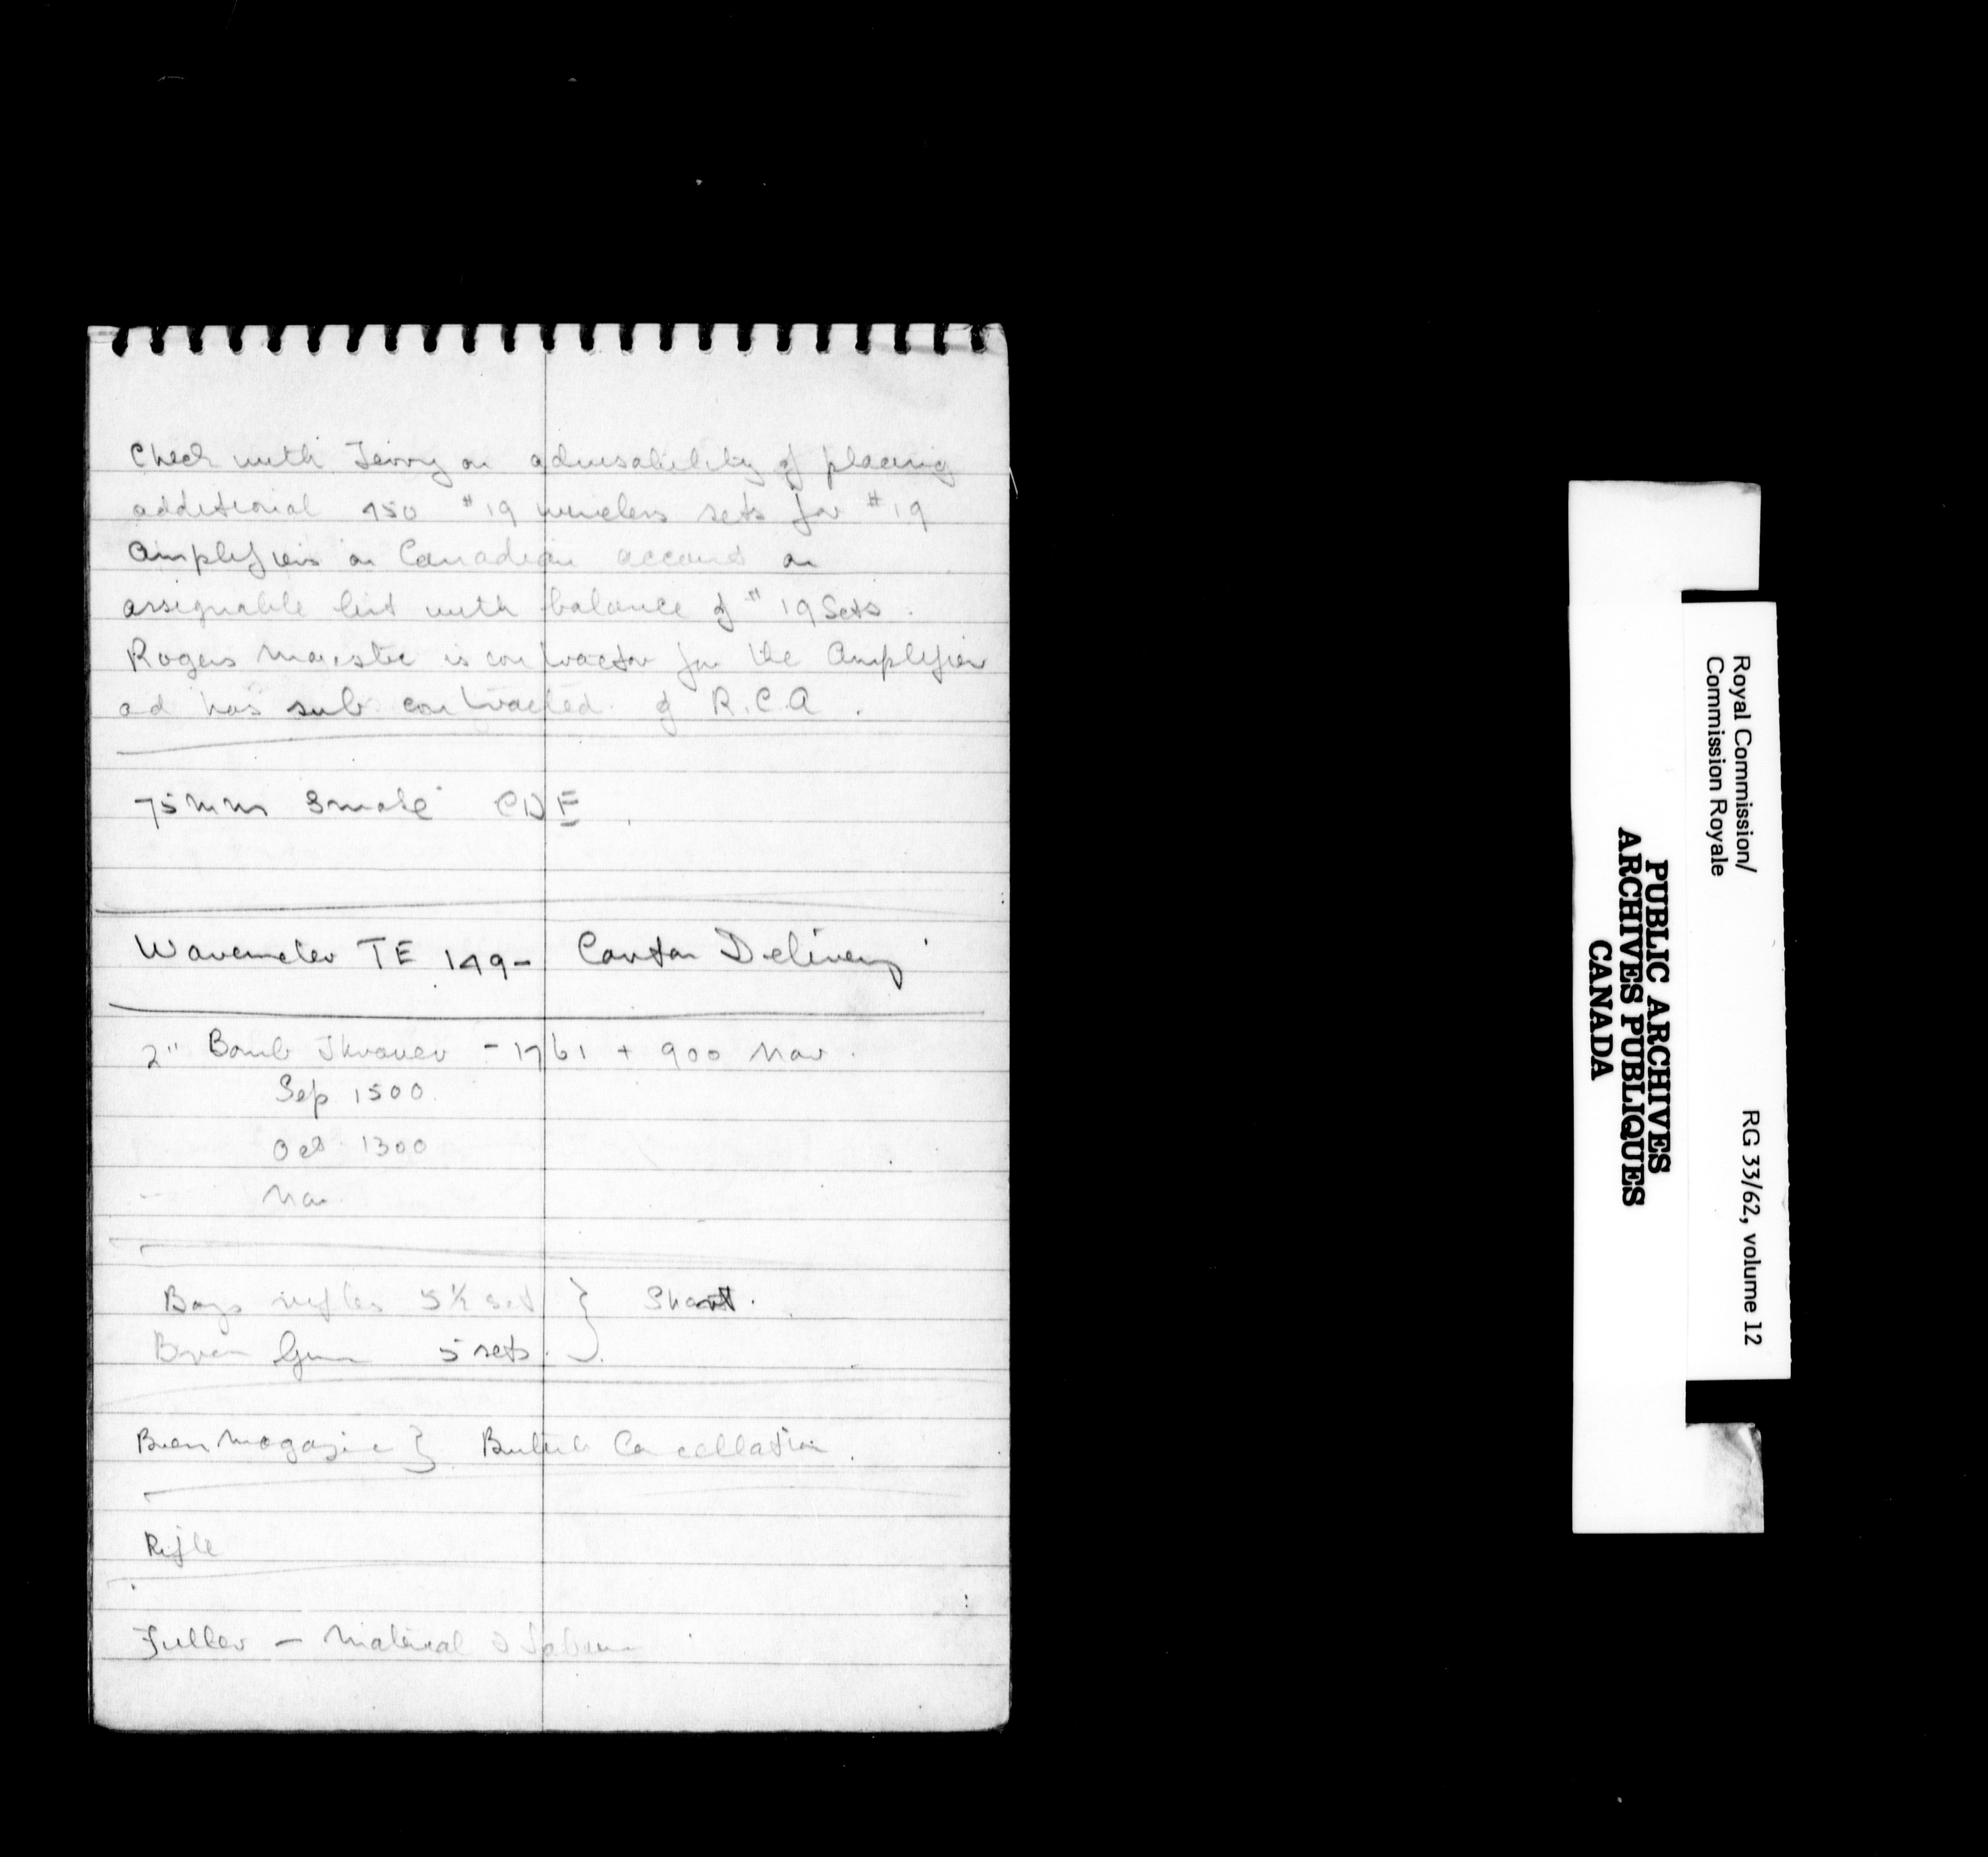 Check with Terry on advisability of placing
additional 450 #19 wireless sets for #19
Amplifiers on Canadian account on
assignable list with balance of #19 Sets.
Rogers Majestic is contractor for the Amplifier
ad has sub contracted of R.C.A.
75mm Smoke CDE
Wavemeter TE 149 - Delivery
2" Bomb Thrower - 1761 + 900 Nov.
Sep 1500.
Oct 1300
Nov
Boys rifles 5½ set } Short.
Bren Gun 5 sets. }
Bren Magazine } British Cancellation.
Rifle
Fuller - Material & Labour
Royal Commission/
Commission Royale
RG 33/62, volume 12
PUBLIC ARCHIVES
ARCHIVES PUBLIQUES
CANADA